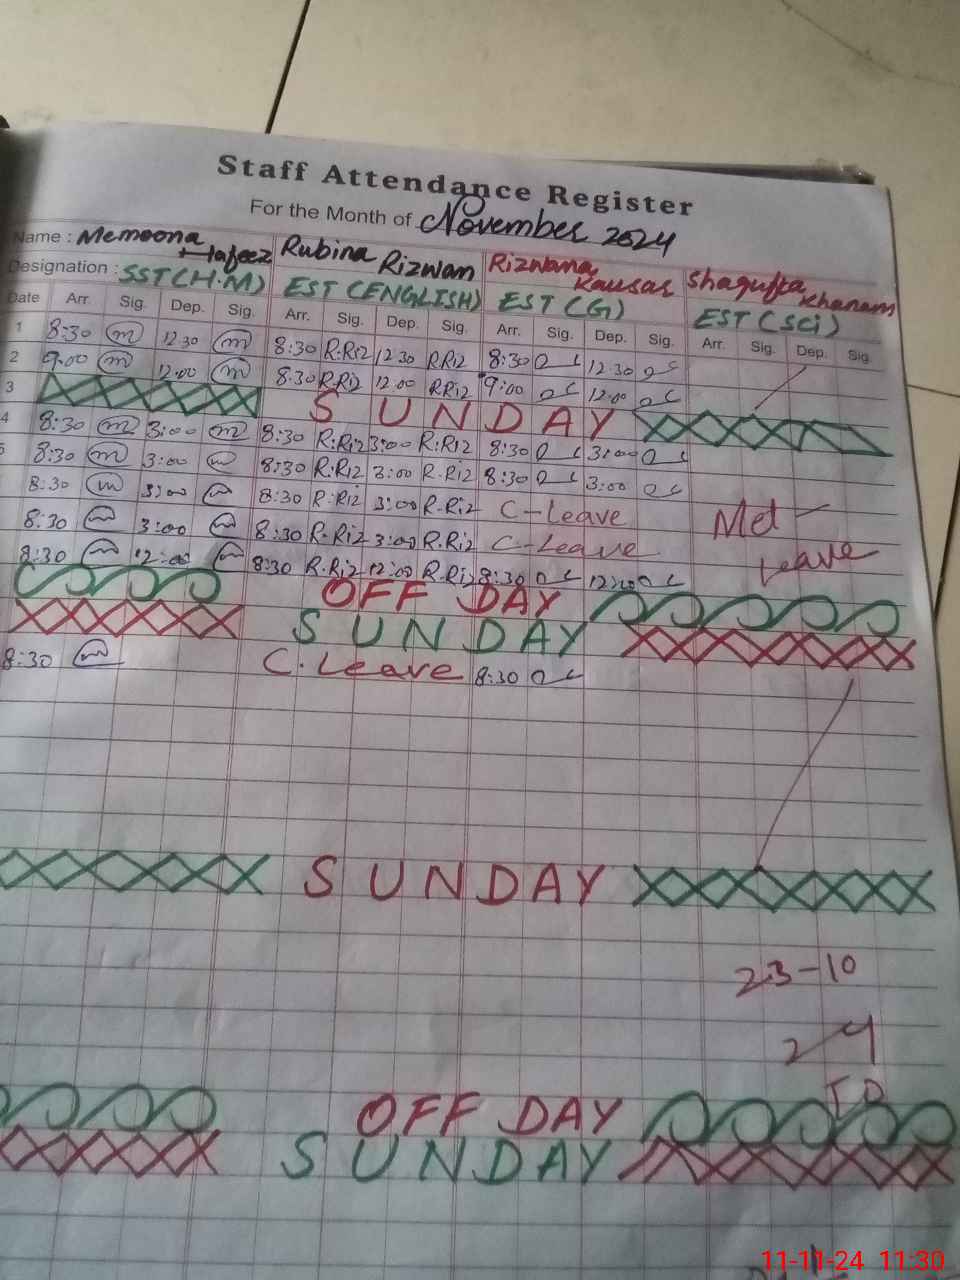 Staff Attendance Register
For the Month of November 2024
Name : Memoona Hafeez Rubina Rizwan Rizwana Kausar Shagufta Khanam
Designation : SST (H.M) EST (ENGLISH) EST (G) EST (SCi)
Date Arr. Sig. Dep. Sig. Arr. Sig. Dep. Sig. Arr. Sig. Dep. Sig. Arr. Sig. Dep. Sig.
1 8:30 m 12.30 m 8:30 R.Riz 12 30 R.Riz 8:30 12.30
2 9.00 m 12.00 m 8.30 R.Riz 12.00 R.Riz 9:00 12.00
3 SUNDAY
4 8:30 m 3:00 m 8:30 R.Riz 3:00 R.Riz 8:30 3:00
5 8:30 m 3:00 m 8:30 R.Riz 3:00 R.Riz 8:30 3:00
8:30 m 3:00 8:30 R.Riz 3:00 R.Riz C-Leave Med
8:30 3:00 8:30 R.Riz 3:00 R.Riz C-Leave Leave
8:30 12:00 8:30 R.Riz 12:00 R.Riz 8:30 12:00
OFF DAY
SUNDAY
8:30 C. Leave 8:30
SUNDAY
23-10
24
TO
OFF DAY
SUNDAY
11-11-24 11:30